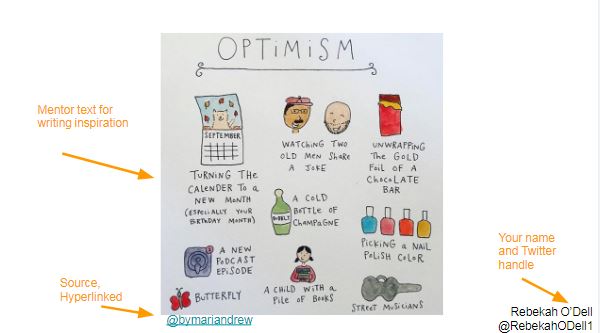 OPTIMISM
Mentor text for
writing inspiration
SEPTEMBER
TURNING THE
CALENDER TO A
NEW MONTH
(ESPECIALLY YOUR
BIRTHDAY MONTH)
WATCHING TWO
OLD MEN SHARE
A JOKE
UNWRAPPING
THE GOLD
FOIL OF A
CHOCOLATE
BAR
BUBBLY
A COLD
BOTTLE OF
CHAMPAGNE
PICKING A NAIL
POLISH COLOR
A NEW
PODCAST
EPISODE
BUTTERFLY
A CHILD WITH A
PILE OF BOOKS
STREET MUSICIANS
Source,
Hyperlinked
@bymariandrew
Your name
and Twitter
handle
Rebekah O'Dell
@RebekahODell1